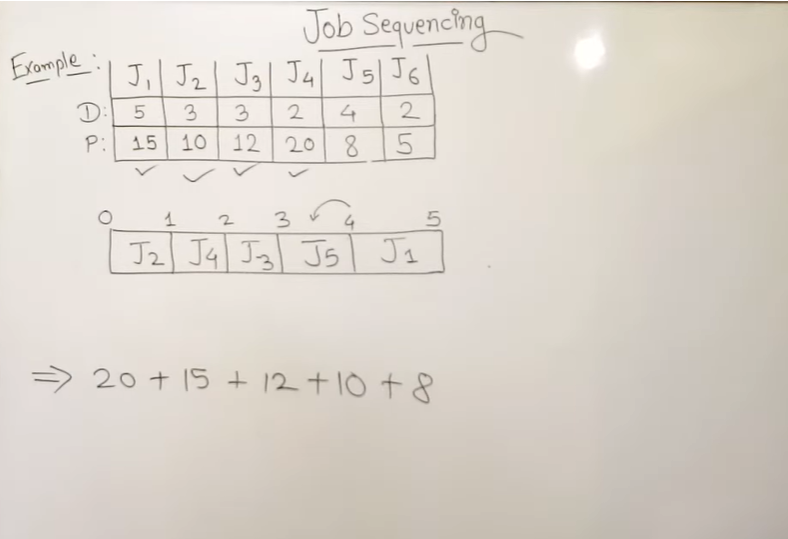 Job Sequencing
Example: J1 J2 J3 J4 J5 J6
D: 5 3 3 2 4 2
P: 15 10 12 20 8 5
✓ ✓ ✓ ✓
0 1 2 3 4 5
J2 J4 J3 J5 J1
⇒ 20 + 15 + 12 + 10 + 8